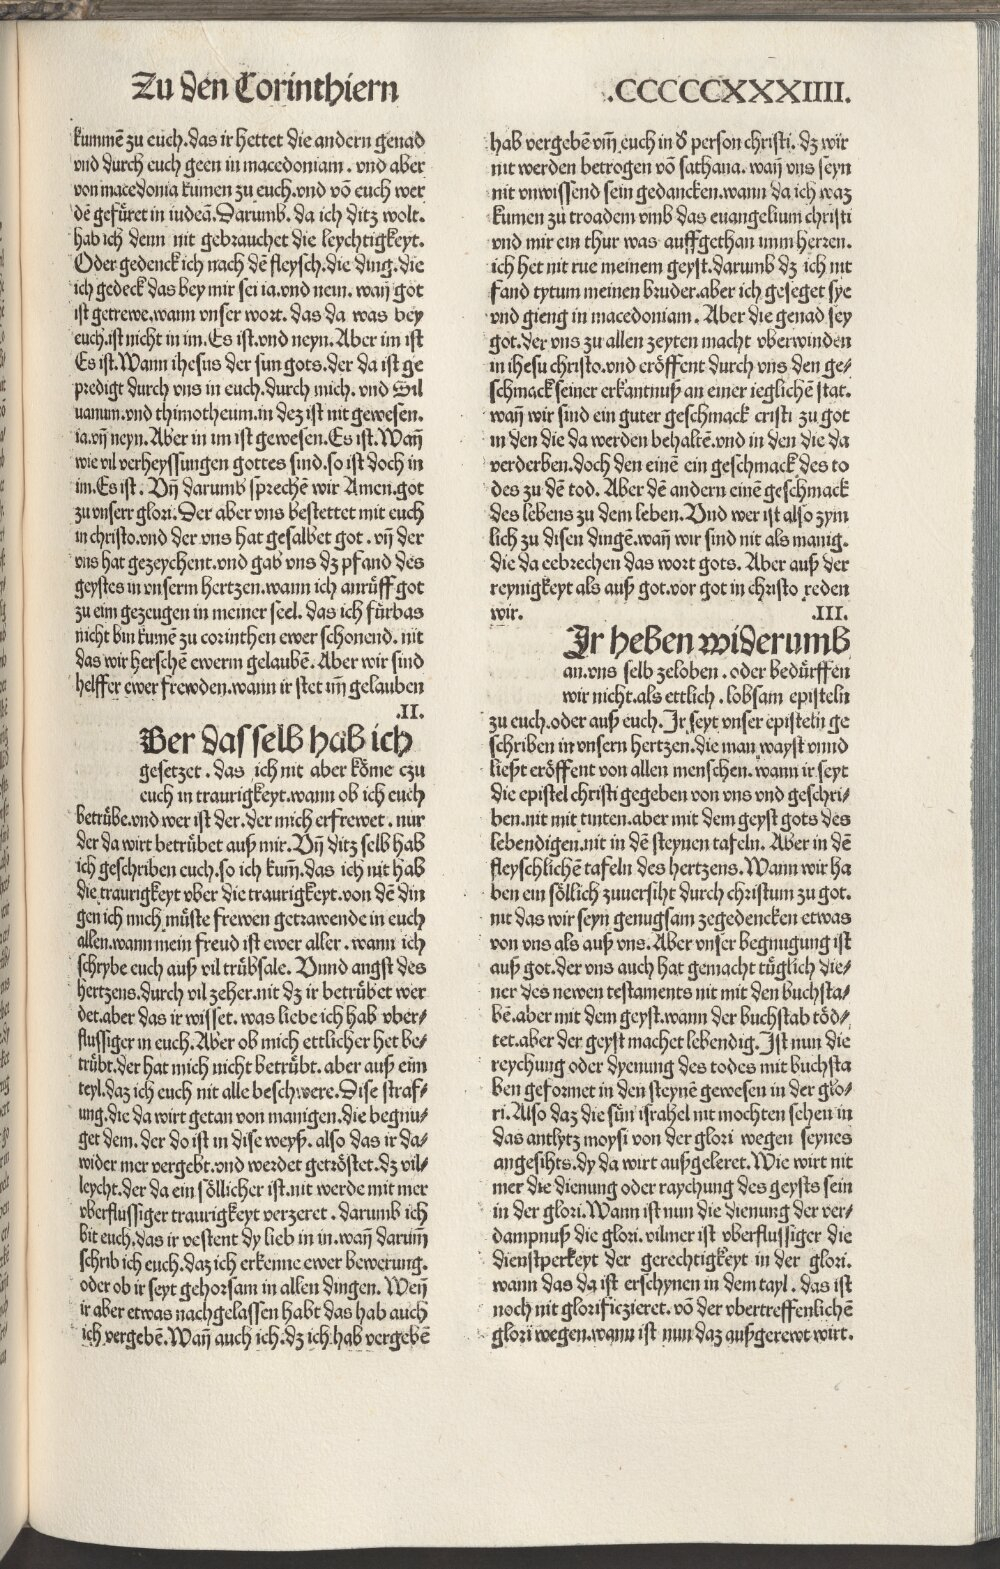 Zu den Corinthiern
.CCCCCXXXIIII.
kummē zu euch.das ir hettet die andern genad
vnd durch euch geen in macedoniam. vnd aber
von macedonia kumen zu euch.vnd vō euch wer
dē gefüret in iudeā.Darumb. da ich ditz wolt.
hab ich denn nit gebrauchet die leychtigkeyt.
Oder gedenck ich nach dē fleysch.die ding.die
ich gedeck das bey mir sei ia.vnd nein. wañ got
ist getrewe.wann vnser wort. das da was bey
euch.ist nicht in im.Es ist.vnd neyn.Aber im ist
Es ist.Wann ihesus der sun gots.der da ist ge
predigt durch vns in euch.durch mich. vnd Sil
uanum.vnd thimotheum.in dez ist nit gewesen.
ia.vñ neyn.Aber in im ist gewesen.Es ist.Wañ
wie vil verheyssungen gottes sind.so ist doch in
im.Es ist. Vñ darumb sprechē wir Amen.got
zu vnserr glori.Der aber vns bestettet mit euch
in christo.vnd der vns hat gesalbet got. vñ der
vns hat gezeychent.vnd gab vns dz pfand des
geystes in vnserm hertzen.wann ich anrüff got
zu eim gezeugen in meiner seel. das ich fürbas
nicht bin kumē zu corinthen ewer schonend. nit
das wir herschē ewerm gelaubē. Aber wir sind
helffer ewer frewden.wann ir stet im gelauben
.II.
Ber das selb hab ich
gesetzet. das ich nit aber köme czu
euch in traurigkeyt.wann ob ich euch
betrübe.vnd wer ist der.der mich erfrewet. nur
der da wirt betrübet auß mir.Vñ ditz selb hab
ich geschriben euch.so ich kum̄.das ich nit hab
die traurigkeyt vber die traurigkeyt.von dē din
gen ich mich müste frewen getrawende in euch
allen.wann mein freud ist ewer aller. wann ich
schrybe euch auß vil trübsale. Vnnd angst des
hertzens.durch vil zeher.nit dz ir betrübet wer
det.aber das ir wisset. was liebe ich hab vber⸗
flussiger in euch.Aber ob mich ettlicher het be⸗
trübt.der hat mich nicht betrübt. aber auß eim
teyl.daz ich euch nit alle beschwere.Dise straf⸗
ung.die da wirt getan von manigen.die begnu⸗
get dem. der do ist in dise weyß. also das ir da⸗
wider mer vergebt.vnd werdet getröstet.dz vil⸗
leycht.der da ein söllicher ist.nit werde mit mer
vberflussiger traurigkeyt verzeret. darumb ich
bit euch.das ir vestent dy lieb in in.wañ darum̄
schrib ich euch.daz ich erkenne ewer bewerung.
oder ob ir seyt gehorsam in allen dingen. Weñ
ir aber etwas nachgelassen habt das hab auch
ich vergebē.Wañ auch ich.dz ich hab vergebē
hab vergebē vm̄ euch in d̕ person christi. dz wir
nit werden betrogen vō sathana. wañ vns seyn
nit vnwissend sein gedancken.wann da ich waz
kumen zu troadem vmb das euangelium christi
vnd mir ein thur was auffgethan imm herren.
ich het nit rue meinem geyst.darumb dz ich nit
fand tytum meinen bruder.aber ich geseget sye
vnd gieng in macedoniam. Aber die genad sey
got.der vns zu allen zeyten macht vberwinden
in ihesu christo.vnd eröffent durch vns den ge⸗
schmack seiner erkantnuß an einer ieglichē stat.
wañ wir sind ein guter geschmack cristi zu got
in den die da werden behaltē.vnd in den die da
verderben.doch den einē ein geschmack des to
des zu dē tod. Aber dē andern einē geschmack
des lebens zu dem leben.Vnd wer ist also zym
lich zu disen dingē.wañ wir sind nit als manig.
die da eebrechen das wort gots. Aber auß der
reynigkeyt als auß got.vor got in christo reden
wir.
.III.
Ir heben widerumb
an.vns selb zeloben. oder bedürffen
wir nicht.als ettlich. lobsam episteln
zu euch.oder auß euch.Ir seyt vnser episteln ge
schriben in vnsern hertzen.die man wayst vnnd
ließt eröffent von allen menschen.wann ir seyt
die epistel christi gegeben von vns vnd geschri⸗
ben.nit mit tinten.aber mit dem geyst gots des
lebendigen.nit in dē steynen tafeln. Aber in dē
fleyschlichē tafeln des hertzens.Wann wir ha
ben ein söllich zuuersiht durch christum zu got.
nit das wir seyn genugsam zegedencken etwas
von vns als auß vns.Aber vnser begnugung ist
auß got.der vns auch hat gemacht tüglich die⸗
ner des newen testaments nit mit den buchsta⸗
bē.aber mit dem geyst.wann der buchstab töd⸗
tet.aber der geyst machet lebendig.Ist nun die
reychung oder dyenung des todes mit buchsta
ben geformet in den steynē gewesen in der glo⸗
ri.Also daz die sün israhel nit mochten sehen in
das antlytz moysi von der glori wegen seynes
angesihts.dy da wirt außgeleret.Wie wirt nit
mer die dienung oder raychung des geysts sein
in der glori.Wann ist nun die dienung der ver⸗
dampnuß die glori.vilmer ist vberflussiger die
dienstperkeyt der gerechtigkeyt in der glori.
wann das da ist erschynen in dem tayl. das ist
noch nit glorificzieret.vō der vbertreffenlichē
glori wegen.wann ist nun daz außgerewt wirt.